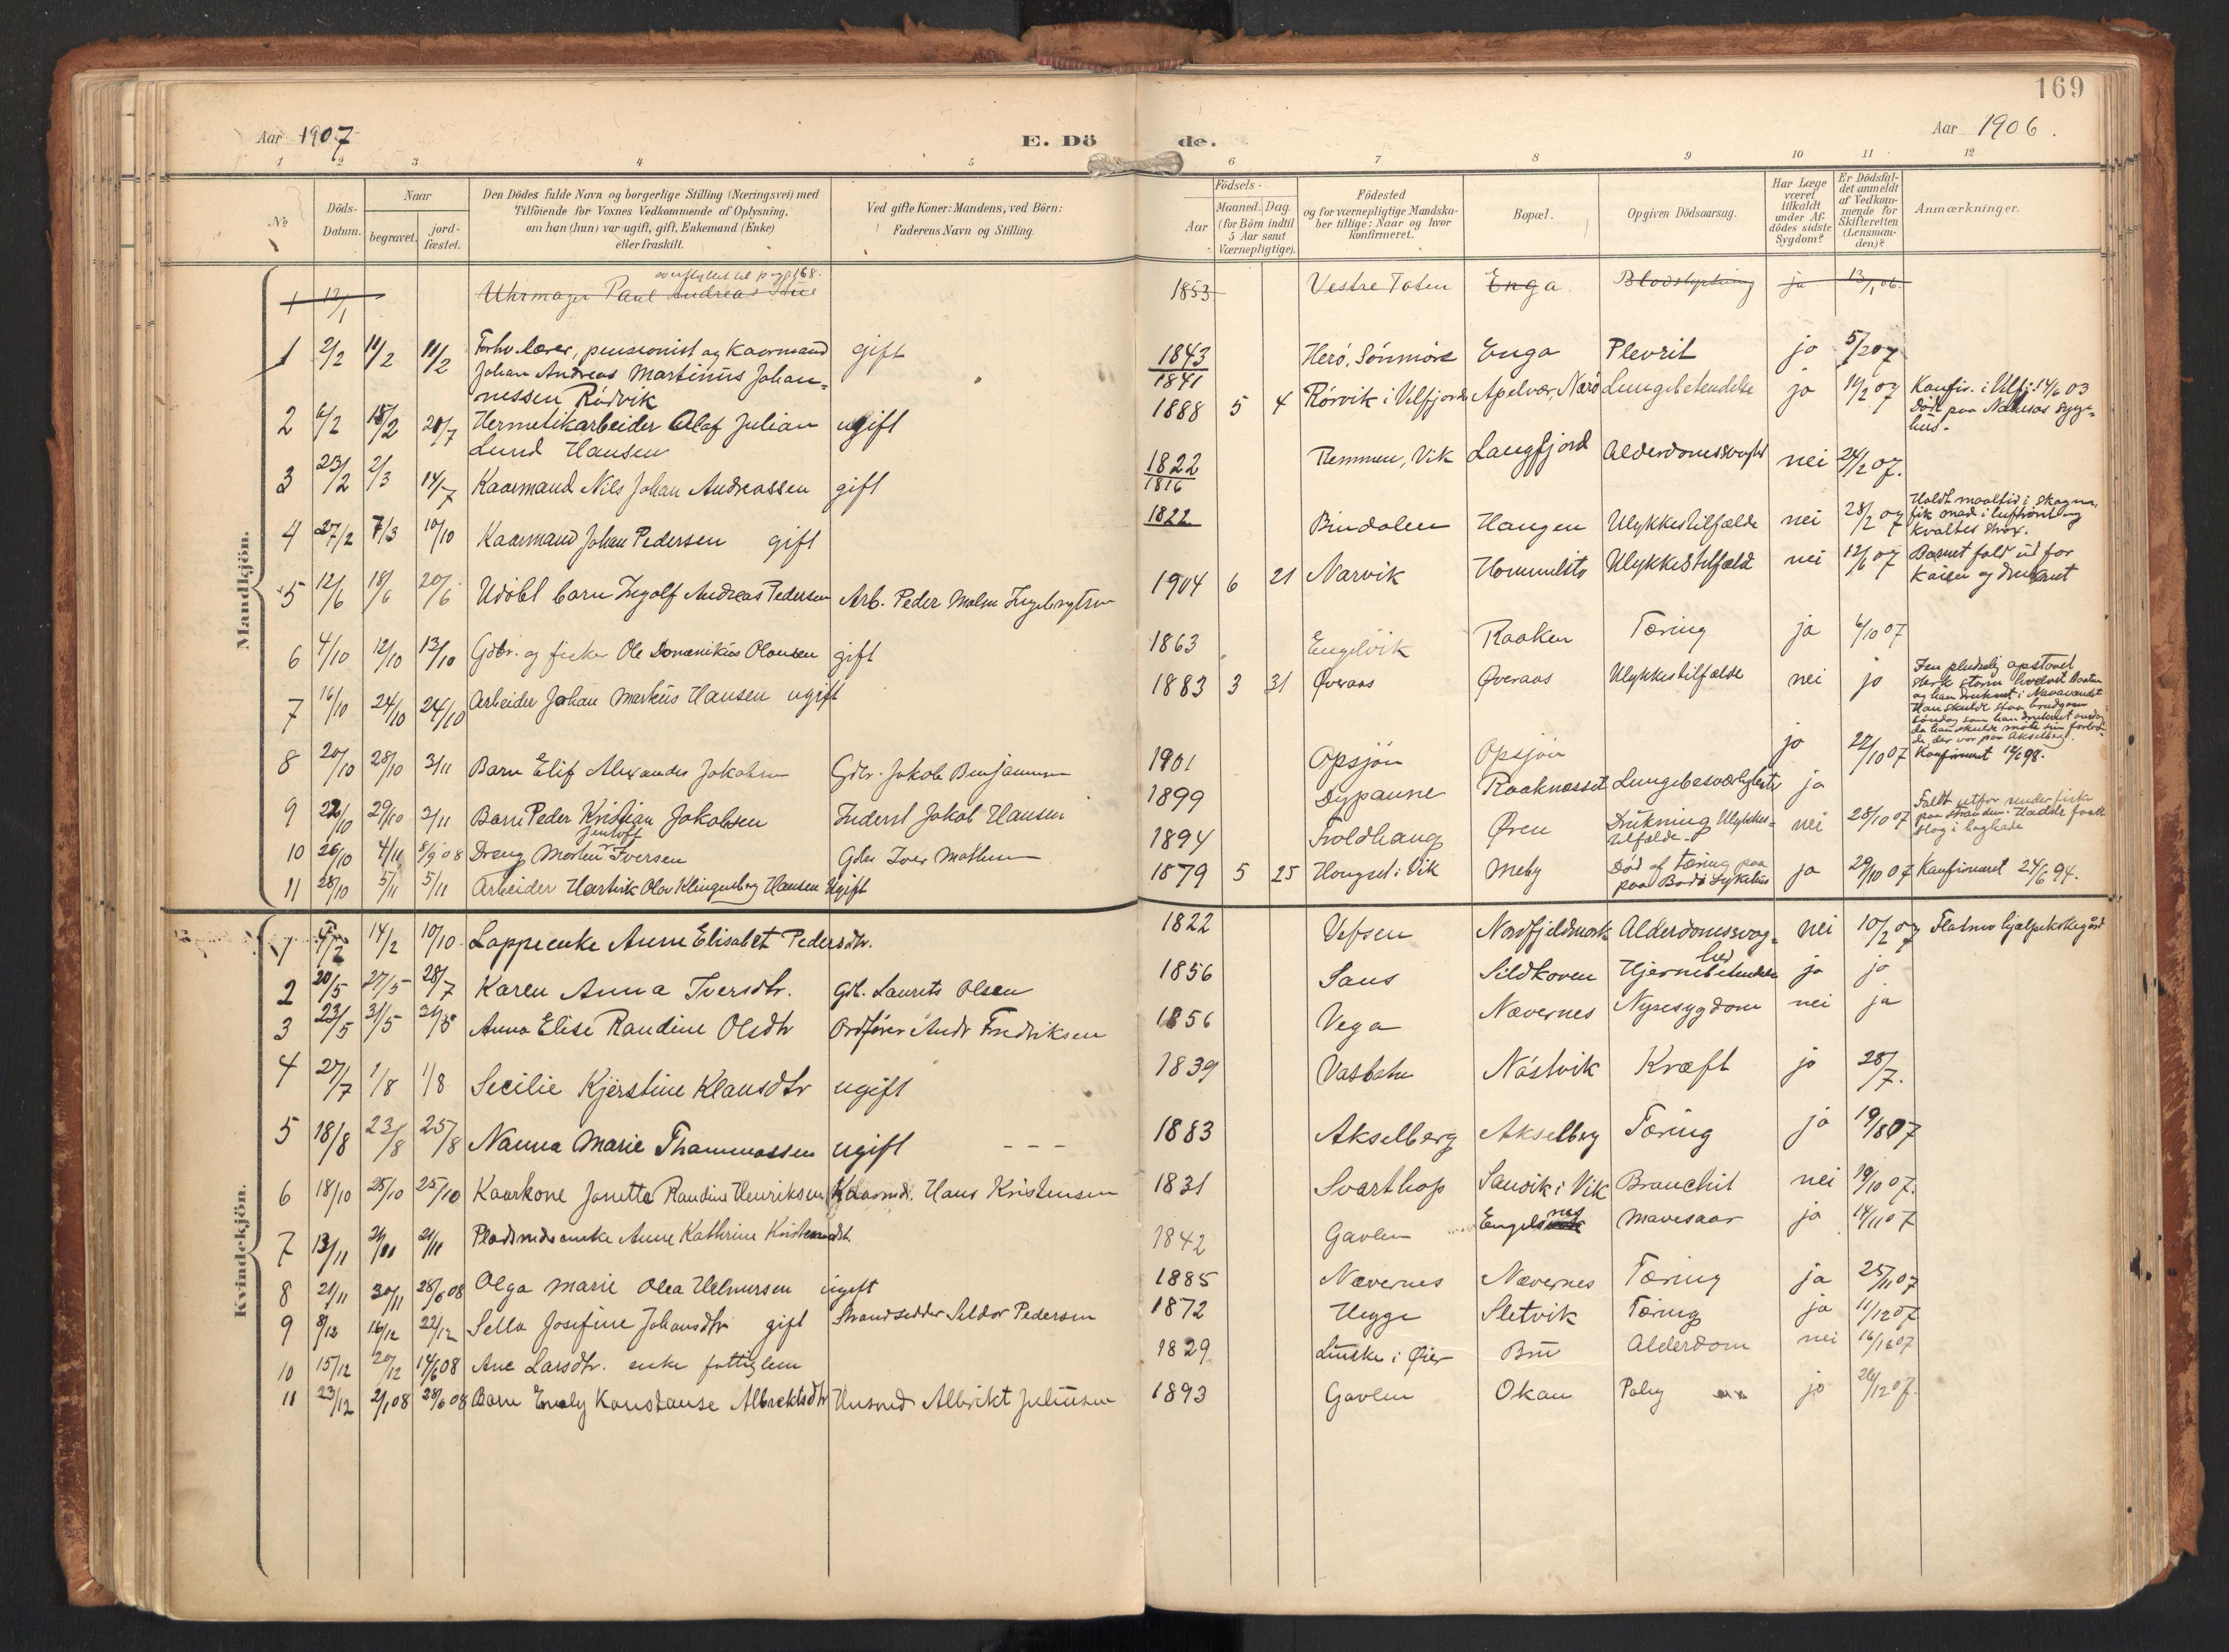 169
Aar 1907
E. Dö
de.
Aar 1906.
1 2 3 4 5 6 7 8 9 10 11 12
No
Döds-Datum.
Naar
begravet.
jord-fæstet.
Den Dödes fulde Navn og borgerlige Stilling (Næringsvei) med
Tilföiende for Voxnes Vedkommende af Oplysning,
om han (hun) var ugift, gift, Enkemand (Enke)
eller fraskilt.
Ved gifte Koner: Mandens, ved Börn:
Faderens Navn og Stilling.
Födsels-
Aar
Maaned. Dag.
(for Börn indtil
5 Aar samt
Værnepligtige).
Födested
og for værnepligtige Mandska-
ber tillige: Naar og hvor
konfirmeret.
Bopæl.
Opgiven Dödsaarsag.
Har Læge
været
tilkaldt
under Af-
dödes sidste
Sygdom?
Er Dödsfal-
det anmeldt
af Vedkom-
mende for
Skifteretten
(Lensman-
den)?
Anmærkninger.
Mandkjön.
overflyttet til pag 168.
1 12/1 Uhrmager Paul Andreas 1853 Vestre Toten Enga. ja 13/1 06.
1 2/2 11/2 11/2 Forhv. lærer, pensionist og Kaarmand gift 1843 Herö, Sönmöre Enga Plevrit ja 5/2 07
Johan Andreas Martinus Johan- 1841
nessen Rödvik
2 6/2 18/2 20/7 Hermetikarbeider Olaf Julian ugift 1888 5 4 Rörvik i Velfjord Apelvær, Nærö Lungebetendelse ja 11/2 07 Konfir. i Velfj. 14/6 03
Lund Hansen
Död paa Namsos syge-
hus.
3 23/2 2/3 14/7 Kaarmand Nils Johan Andreassen gift 1822 Remmen, Vik Langfjord Alderdomssvaghed nei 24/2 07.
1816
4 27/2 7/3 10/10 Kaarmand Johan Pedersen gift 1822 Bindalen Haugen Ulykkestilfælde nei 28/2 07 Holdt maaltid i skogen,
fik mad i luftröret og
kvaltes strax.
5 12/6 18/6 20/6 Udöbt barn Ingolf Andreas Pedersen Arb. Peder Malm 1904 6 21 Narvik Ulykkestilfæld nei 12/6 07 Barnet fald ud for
Kaien og druknet
6 4/10 12/10 13/10 Gdbr. og fisker Ole Domenikus Olausen gift 1863 Engelvik Raaken Tæring ja 6/10 07
7 16/10 24/10 24/10 Arbeider Johan Markus Hansen ugift 1883 3 31 Øveraas Øveraas Ulykkestilfælde nei jo
En pludselig opstaaet
sterk storm hvelvet Baaten
og han druknet i
Han skulde staa brudgom
söndag som han druknet onsdag
da han skulde möte sin forlove-
de, der var paa Akselberg.
Konfirmeret 12/6 98.
8 20/10 28/10 3/11 Barn Elif Alexander Jakobsen Gdbr. Jakob Benjaminsen 1901 Opsjön Opsjön jo 22/10 07
9 22/10 29/10 3/11 Barn Peder Kristian Jakobsen Inderst Jakob Hansen 1899 Dypaune Raaknæsset Lungebesværligheder ja
10 26/10 4/11 8/9 08 Dreng Morten Iversen Gdbr Iver Mathisen 1894 Troldhaug Øren Drukning Ulykkes- nei 28/10 07 Faldt utfor under fiske
tilfælde.
paa stranden. Hadde faaet
slag i baghode
11 28/10 5/11 5/11 Arbeider Hartvik Olav Klingenberg Hansen Ugift 1879 5 25 Hongset i Vik Meby Död af tæring paa ja 29/10 07 Konfirmeret 24/6 94.
paa Bodö Sykehus
Kvindekjön.
1 14/2 10/10 Lappeenke Anne Elisabet Pedersdtr. 1822 Vefsen Nordfjeldmark Alderdomssvag- nei 10/2 07 Flatmo hjælpekirkegård
hed
2 20/5 27/5 28/7 Karen Anna Iversdtr. Gdb. Laurits Olsen 1856 Saus Sildkoven Hjernebetændelse ja jo
3 23/5 31/5 31/5 Anna Elise Randine Olsdtr Ordförer Andr Fredriksen 1856 Vega Nævernes Nyresygdom nei ja
4 27/7 1/8 1/8 Secilie Kjerstine Klausdtr ugift 1839 Vasbotn Nästvik Kræft jo 28/7.
5 18/8 23/8 25/8 Nanna Marie Thommassen ugift - - - 1883 Akselberg Akselberg Tæring jo 19/8 07
6 18/10 25/10 25/10 Kaarkone Janetta Randine Henriksen Kaarmd. Hans Kristensen 1831 Svarthop Sausik i Vik Bronchit nei 19/10 07.
7 13/11 21/11 21/11 Pladsmdsenke Anne Kathrine Kristensdtr. 1842 Gavlen Engelsnes Mavesaar ja 14/11 07
8 21/11 30/11 28/6 08 Olga Marie Olea Helmersen ugift 1885 Nævernes Nævernes Tæring ja 25/11 07
9 8/12 16/12 22/12 Sella Josefine Johansdtr gift Strandsidder Seldor Pedersen 1872 Hegge Sletvik Tæring ja 11/12 07
10 15/12 20/12 14/6 08 Ane Larsdtr. enke fattiglem 1829 i Øier Bru Alderdom nei 16/12 07
11 23/12 2/1 08 28/6 08 Barn Emely Konstanse Albrektsdtr Husmd Albrikt Juliussen 1893 Gavlen Okan Polyp jo 26/12 07.